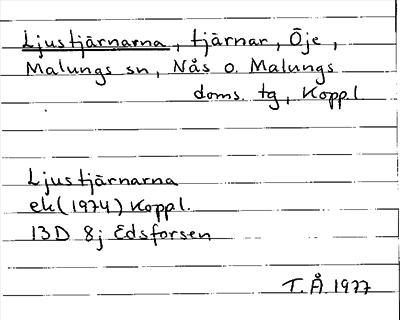 Ljustjärnarna, tjärnar, Öje,
Malungs sn, Nås o. Malungs
doms. tg, Koppl.
Ljustjärnarna
ek (1974) Koppl.
13D 8j Edsforsen
T.Å. 1977